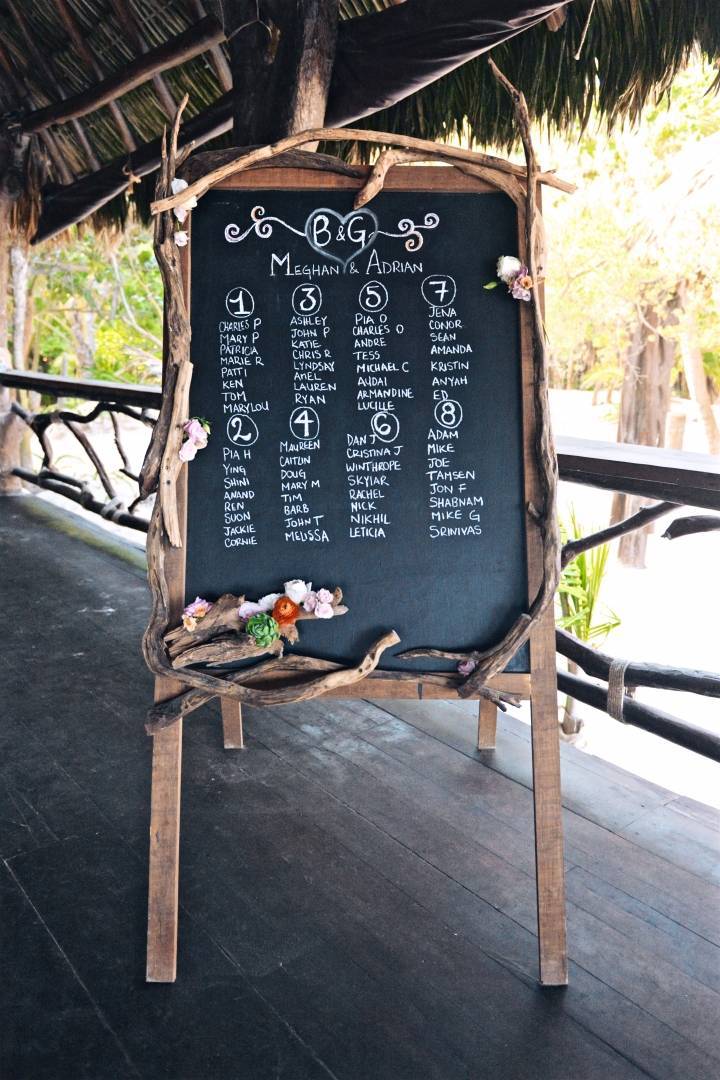 B & G
MEGHAN & ADRIAN
1
CHARLES P
MARY P
PATRICIA
MARIE R
PATTI
KEN
TOM
MARYLOU
2
PIA H
YING
SHINI
ANAND
REN
SUON
JACKIE
CORNIE
3
ASHLEY
JOHN P
KATIE
CHRIS R
LYNDSAY
AMEL
LAUREN
RYAN
4
MAUREEN
CAITLIN
DOUG
MARY M
TIM
BARB
JOHN T
MELISSA
5
PIA O
CHARLES O
ANDRE
TESS
MICHAEL C
AUDAI
ARMANDINE
LUCILLE
6
DAN J
CRISTINA J
WINTHROPE
SKYLAR
RACHEL
NICK
NIKHIL
LETICIA
7
JENA
CONOR
SEAN
AMANDA
KRISTIN
ANYAH
ED
8
ADAM
MIKE
JOE
TAMSEN
JON F
SHABNAM
MIKE G
SRINIVAS